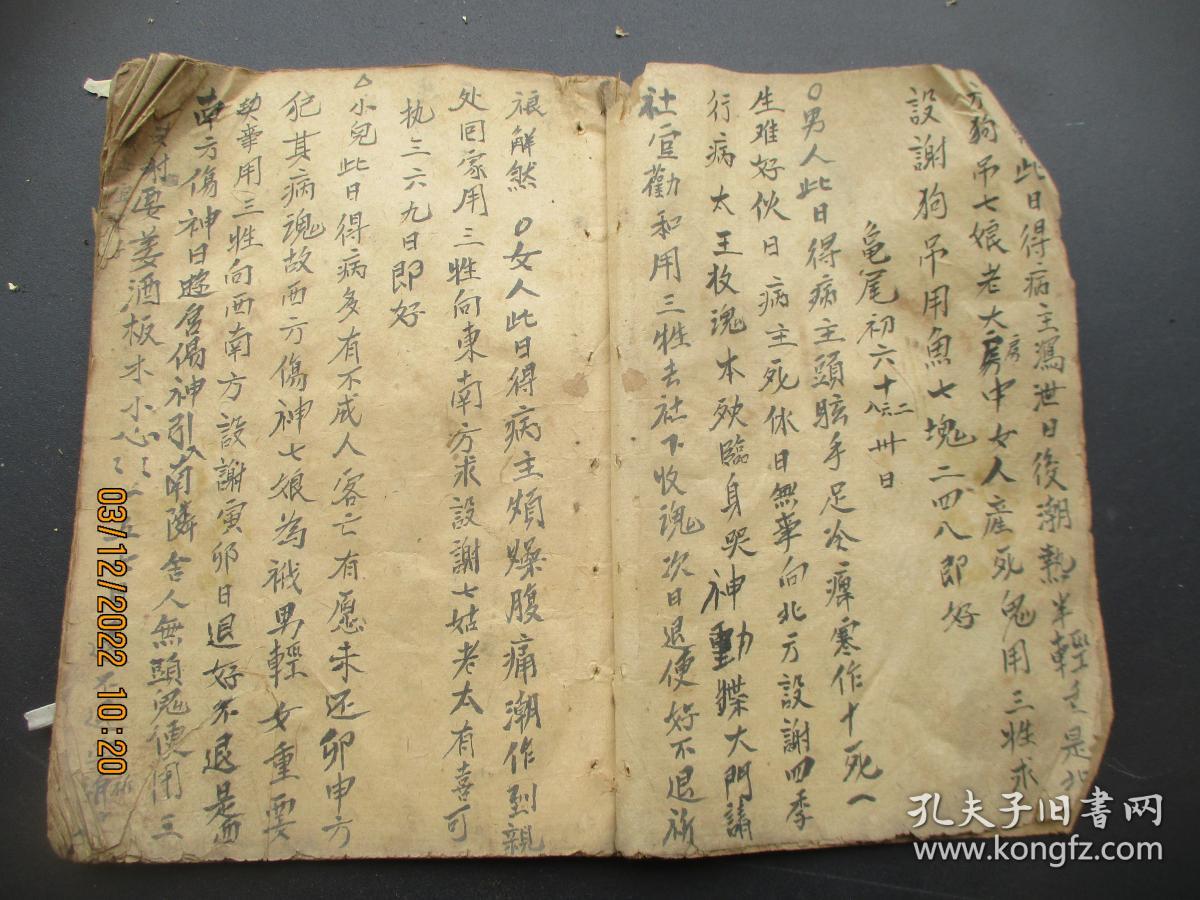 此日得病主瀉泄日後潮熱半輕主是北
方狗吊七娘老大房房中女人產死鬼用三牲求
設謝狗吊用魚七塊二四八即好
亀尾初六十二 十八 卅日
○男人此日得病主頭眩手足冷瘴寒作十死一
生难好伙日病主死休日無事向北方設謝四季
行病太王牧魂本殃臨身哭神動㩸大門請
社官勸和用三牲去社下收魂次日退便好不退祈
禳解然 ○女人此日得病主煩燥腹痛潮作到親
处回家用三牲向東南方求設謝七姑老太有喜可
执三六九日即好
△小兒此日得病多有不成人客亡有愿未还卯申方
犯其病魂故西方傷神七娘為禍男輕女重要
契華用三牲向西南方設謝寅卯日退好不退是西
南方傷神日遊宮傷神引入南隣舍人無頭鬼便用三
要姜酒板木小心
03/12/2022 10:20
孔夫子旧书网
www.kongfz.com